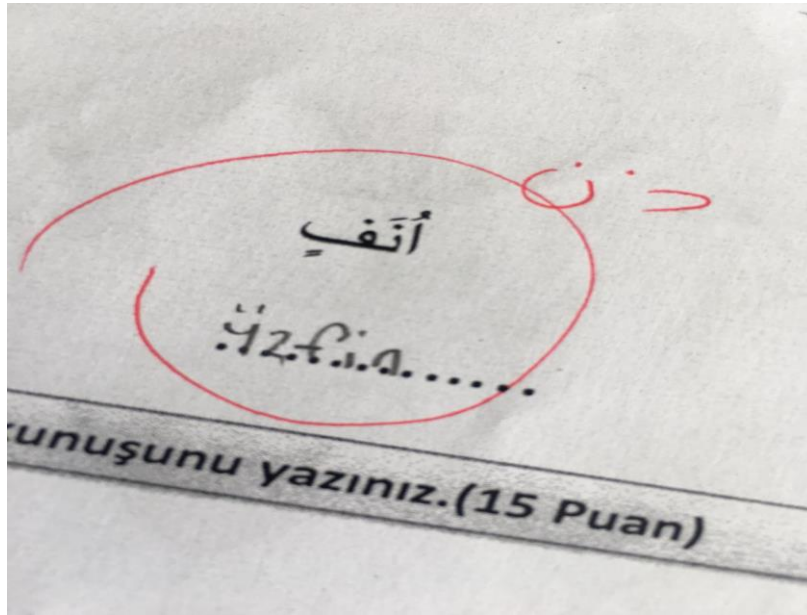 ذ ن
أُنَفٍ
üzfin
kunuşunu yazınız.(15 Puan)